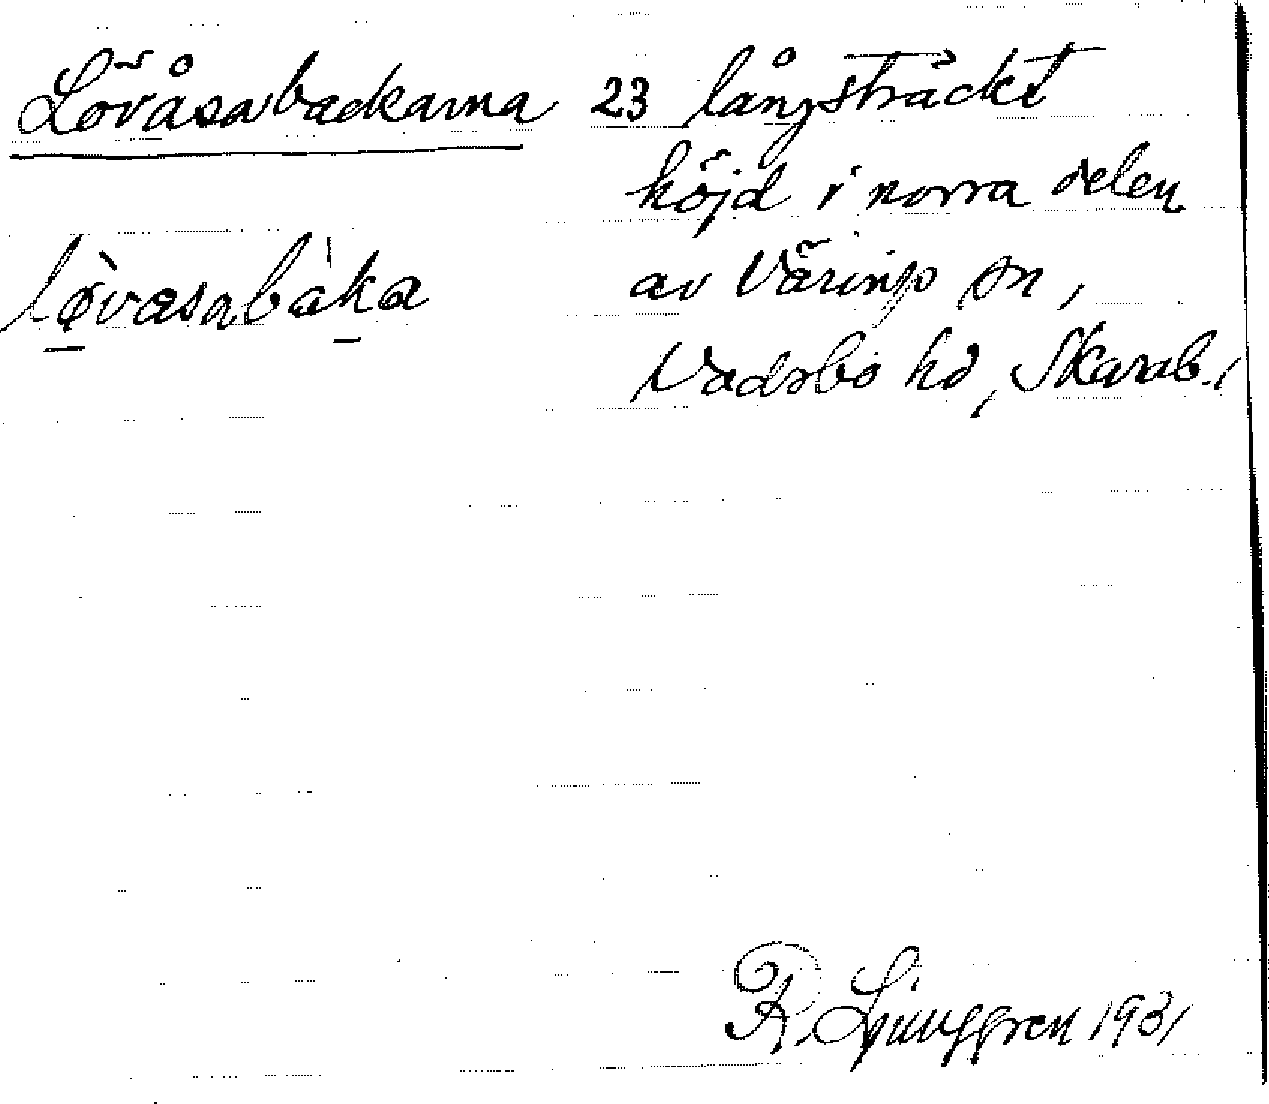 Lövåsabackarna 23 långsträckt
höjd i norra delen
av Värings sn,
Vadsbo hd, Skarab.
lø̀vasabàka
R. Ljunggren 1931